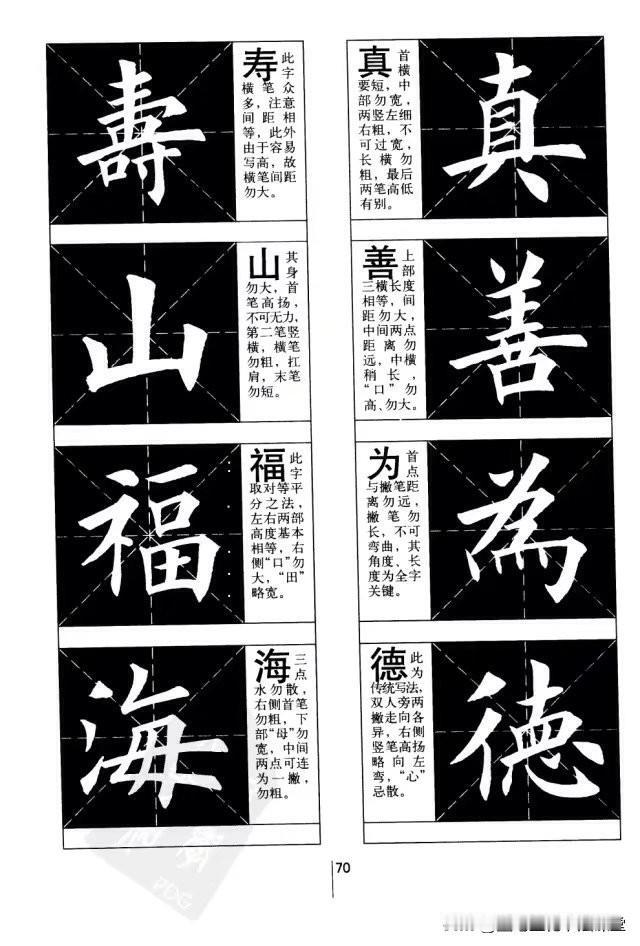 壽
寿 此字
横笔众
多，注意
间距相
等，此外
由于容易
写高，故
横笔间距
勿大。
山
山 其身
勿大，首
笔高扬，
不可无力，
第二笔竖
横，横笔
勿粗，扛
肩，末笔
勿短。
福
福 此字
取对等平
分之法，
左右两部
高度基本
相等，右
侧“口”勿
大，“田”
略宽。
海
海 三点
水勿散，
右侧首笔
勿粗，下
部“母”勿
宽，中间
两点可连
为一撇，
勿粗。
真 首横
要短，中
部勿宽，
两竖左细
右粗，不
可过宽，
长横勿
粗，最后
两笔高低
有别。
真
善 上部
三横长度
相等，间
距勿大，
中间两点
距离勿
远，中横
稍长，
“口”勿
高、勿大。
善
为 首点
与撇笔距
离勿远，
撇笔勿
长，不可
弯曲，其
角度、长
度为全字
关键。
為
德 此为
传统写法，
双人旁两
撇走向各
异，右侧
竖笔高扬
略向左
弯，“心”
忌散。
徳
70
PDG